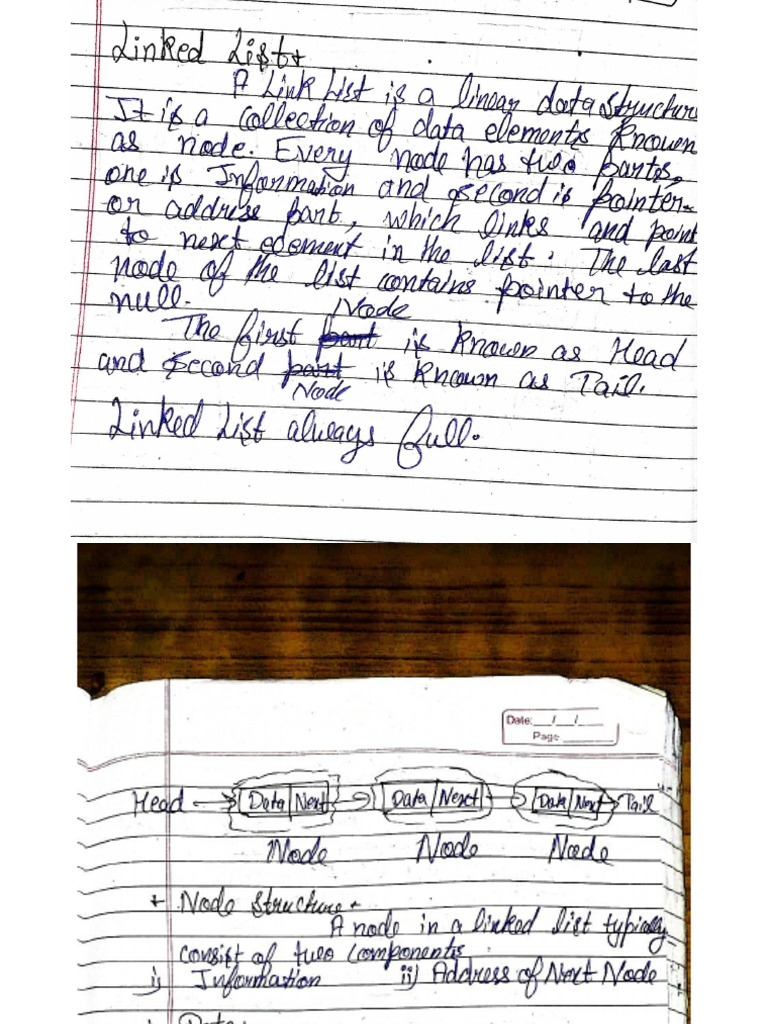 Linked List
A Link List is a linear data structure
It is a collection of data elements known
as node. Every node has two parts,
one is Information and second is pointer
or address part, which links and point
to next element in the list. The last
node of the list contains pointer to the
null.
Node
The first part is known as Head
and second part is known as Tail.
Node
Linked List always full.
Date:__/__/__
Page
Head Data Next Data Next Data Next Tail
Node Node Node
Node Structure
A node in a linked list typically
consist of two components
i) Information ii) Address of Next Node